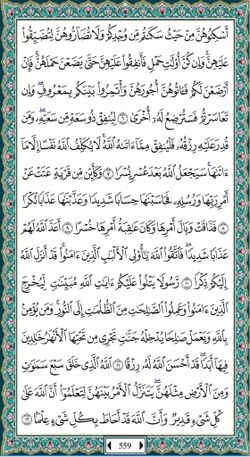 أَسْكِنُوهُنَّ مِنْ حَيْثُ سَكَنتُم مِّن وُجْدِكُمْ وَلَا تُضَآرُّوهُنَّ لِتُضَيِّقُوا۟
عَلَيْهِنَّ ۚ وَإِن كُنَّ أُو۟لَٰتِ حَمْلٍ فَأَنفِقُوا۟ عَلَيْهِنَّ حَتَّىٰ يَضَعْنَ حَمْلَهُنَّ ۚ فَإِنْ
أَرْضَعْنَ لَكُمْ فَـَٔاتُوهُنَّ أُجُورَهُنَّ ۖ وَأْتَمِرُوا۟ بَيْنَكُم بِمَعْرُوفٍ ۖ وَإِن
تَعَاسَرْتُمْ فَسَتُرْضِعُ لَهُۥٓ أُخْرَىٰ ۝٦ لِيُنفِقْ ذُو سَعَةٍ مِّن سَعَتِهِۦ ۖ وَمَن
قُدِرَ عَلَيْهِ رِزْقُهُۥ فَلْيُنفِقْ مِمَّآ ءَاتَىٰهُ ٱللَّهُ ۚ لَا يُكَلِّفُ ٱللَّهُ نَفْسًا إِلَّا مَآ
ءَاتَىٰهَا ۚ سَيَجْعَلُ ٱللَّهُ بَعْدَ عُسْرٍ يُسْرًا ۝٧ وَكَأَيِّن مِّن قَرْيَةٍ عَتَتْ عَنْ
أَمْرِ رَبِّهَا وَرُسُلِهِۦ فَحَاسَبْنَٰهَا حِسَابًا شَدِيدًا وَعَذَّبْنَٰهَا عَذَابًا نُّكْرًا
۝٨ فَذَاقَتْ وَبَالَ أَمْرِهَا وَكَانَ عَٰقِبَةُ أَمْرِهَا خُسْرًا ۝٩ أَعَدَّ ٱللَّهُ لَهُمْ
عَذَابًا شَدِيدًا ۖ فَٱتَّقُوا۟ ٱللَّهَ يَٰٓأُو۟لِى ٱلْأَلْبَٰبِ ٱلَّذِينَ ءَامَنُوا۟ ۚ قَدْ أَنزَلَ ٱللَّهُ
إِلَيْكُمْ ذِكْرًا ۝١٠ رَّسُولًا يَتْلُوا۟ عَلَيْكُمْ ءَايَٰتِ ٱللَّهِ مُبَيِّنَٰتٍ لِّيُخْرِجَ
ٱلَّذِينَ ءَامَنُوا۟ وَعَمِلُوا۟ ٱلصَّٰلِحَٰتِ مِنَ ٱلظُّلُمَٰتِ إِلَى ٱلنُّورِ ۚ وَمَن يُؤْمِنۢ
بِٱللَّهِ وَيَعْمَلْ صَٰلِحًا يُدْخِلْهُ جَنَّٰتٍ تَجْرِى مِن تَحْتِهَا ٱلْأَنْهَٰرُ خَٰلِدِينَ
فِيهَآ أَبَدًا ۖ قَدْ أَحْسَنَ ٱللَّهُ لَهُۥ رِزْقًا ۝١١ ٱللَّهُ ٱلَّذِى خَلَقَ سَبْعَ سَمَٰوَٰتٍ
وَمِنَ ٱلْأَرْضِ مِثْلَهُنَّ يَتَنَزَّلُ ٱلْأَمْرُ بَيْنَهُنَّ لِتَعْلَمُوٓا۟ أَنَّ ٱللَّهَ عَلَىٰ
كُلِّ شَىْءٍ قَدِيرٌ وَأَنَّ ٱللَّهَ قَدْ أَحَاطَ بِكُلِّ شَىْءٍ عِلْمًۢا ۝١٢
559